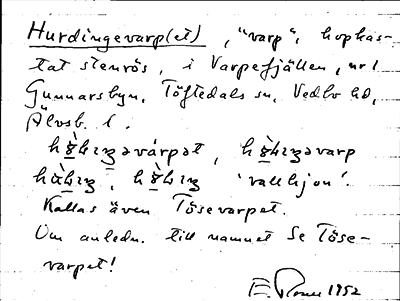 Hurdingevarp(et) , "varp", hopkas-
tat stenrös, i Varpefjällen, nr 1
Gunnarsbyn, Töftedals sn, Vedbo hd,
Älvsb. l.
'vallhjon'.
Kallas även Tösevarpet.
Om anledn. till namnet Se Töse-
varpet!
1952